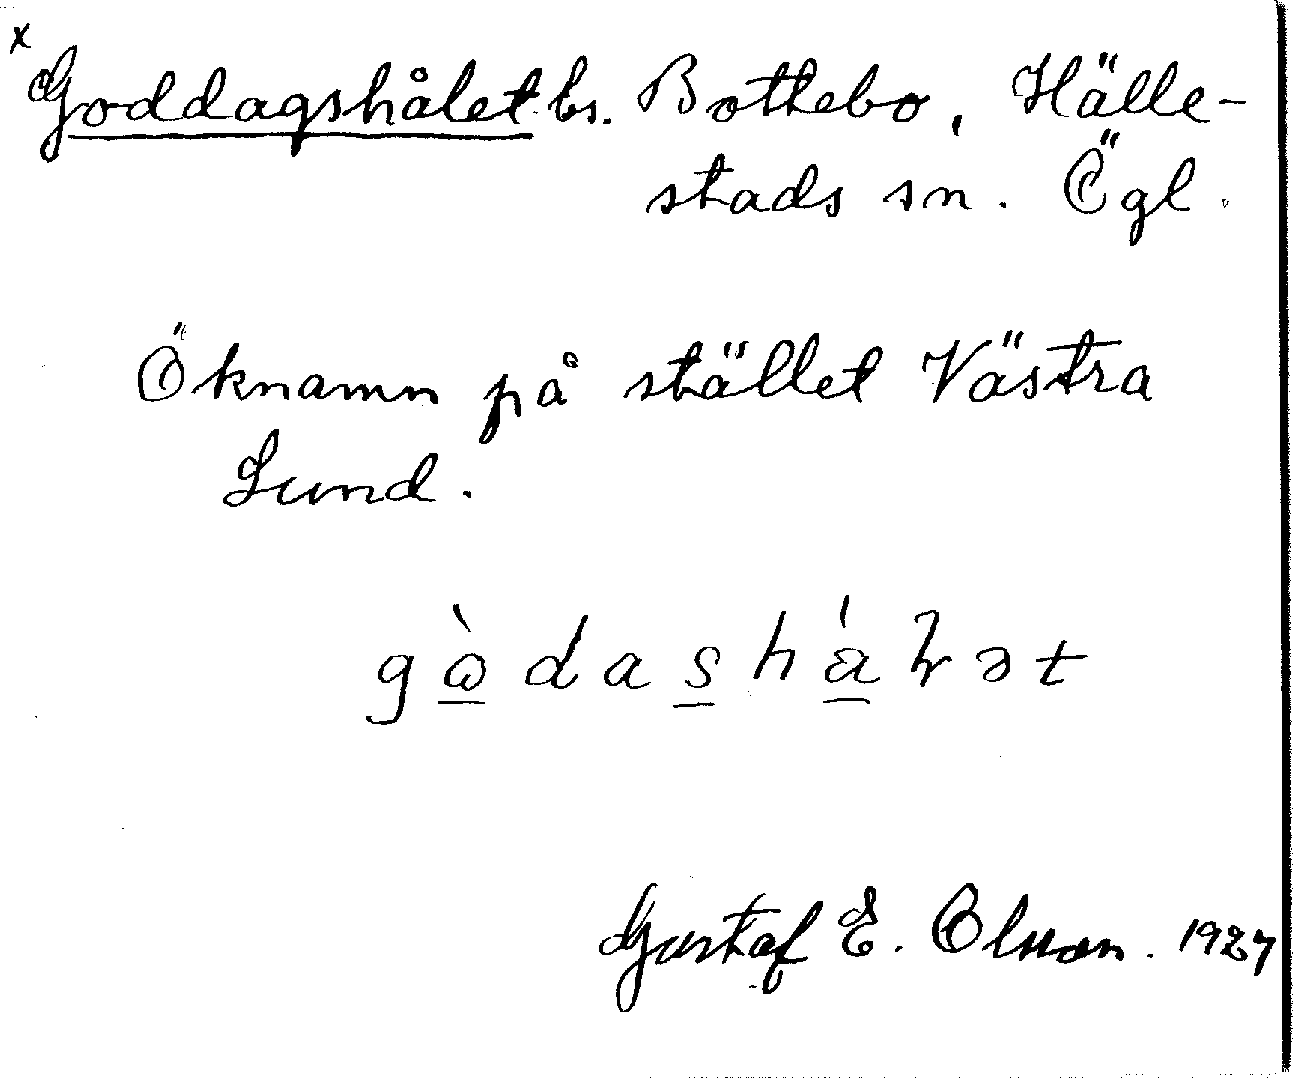 x Goddagshålet bs. Bottebo, Hälle-
stads sn. Ögl.
Öknamn på stället Västra
Lund.
gòdasháłət
Gustaf E. Olsson. 1927